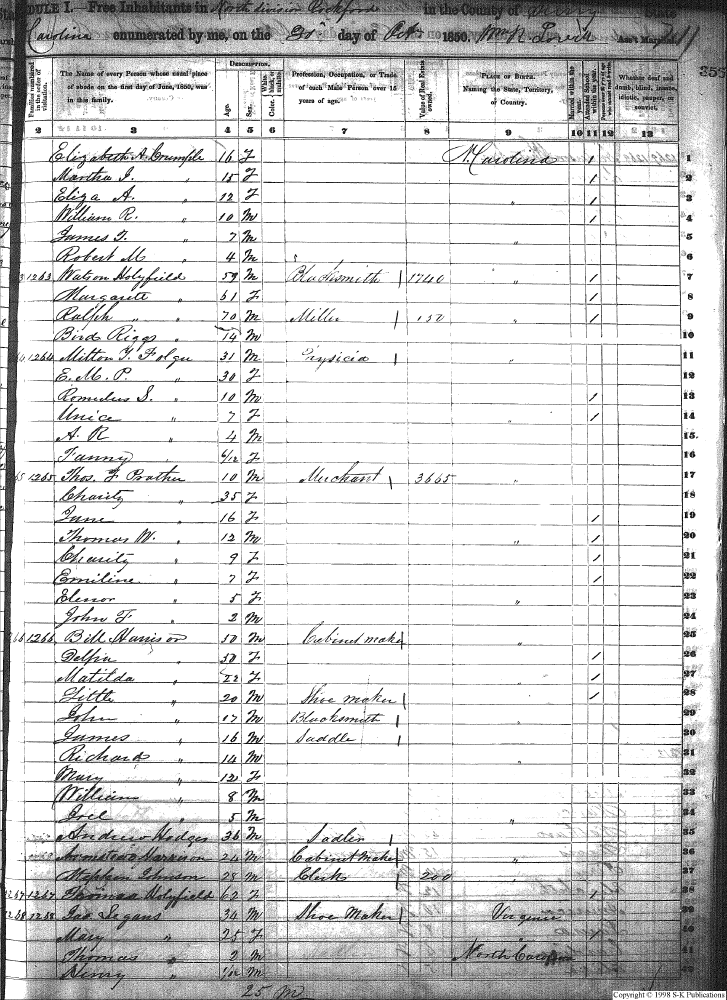 DULE I.—Free Inhabitants in North division Rockford in the County of Surry State
Carolina enumerated by me, on the day of Oct 1850. Wm R Ass't Marshal
353
DESCRIPTION.
The Name of every Person whose usual place of abode on the first day of June, 1850, was in this family.
Age.
Sex.
White, black, or mulatto.
Color.
Profession, Occupation, or Trade of each Male Person over 15 years of age.
Value of Real Estate owned.
PLACE OF BIRTH. Naming the State, Territory, or Country.
Married within the year.
Attended School within the year.
Whether deaf and dumb, blind, insane, idiotic, pauper, or convict.
2 3 4 5 6 7 8 9 10 11 12 13
Elizabeth A. Crumple 16 F N. Carolina / 1
Martha J. " 15 F / 2
Eliza A. " 12 F " / 3
William R. " 10 M / 4
James T. " 7 M " 5
Robert M " 4 M 6
1263 Watson Holyfield 59 M Blacksmith 1740 " / 7
Margarett " 61 F / 8
Ralph " " 70 M Miller 150 " / 9
Bird Riggs " 14 M 10
1264 Milton Y. Folger 31 M Physicia " 11
E. M. P. " 30 F 12
Romulus S. " 10 M / 13
Unice " 7 F / 14
A. R " 4 M 15
Fanny " 6/12 F 16
1265 Thos. F Prather 10 M Merchant 3665 " 17
Charity " 35 F 18
Jane " 16 F / 19
Thomas W. " 12 M " / 20
Charity " 9 F / 21
Emiline " 7 F / 22
Elenor " 5 F " 23
John F " 2 M 24
1266 Bill Harrison 50 M Cabinet maker " 25
Delpia " 50 F / 26
Matilda " 22 F " / 27
Little " 20 M Shoe maker / 28
John " 17 M Blacksmith 29
James " 16 M Saddle 30
Richard " 14 M " 31
Mary " 12 F 32
William " 8 M
Joel " 5 M "
Andrew Hodges 36 M Sadler 35
Armstead Harrison 24 M Cabinet Maker "
Stephen Johnson 28 M Clerk 200
1267 1267 Thomas Holyfield 62 F /
1268 1268 Jas. Legans 34 M Shoe Maker Virginia
Mary " 25 F " /
Thomas " 2 M North Carolina
Henry " M
25 M
Copyright © 1998 S-K Publications